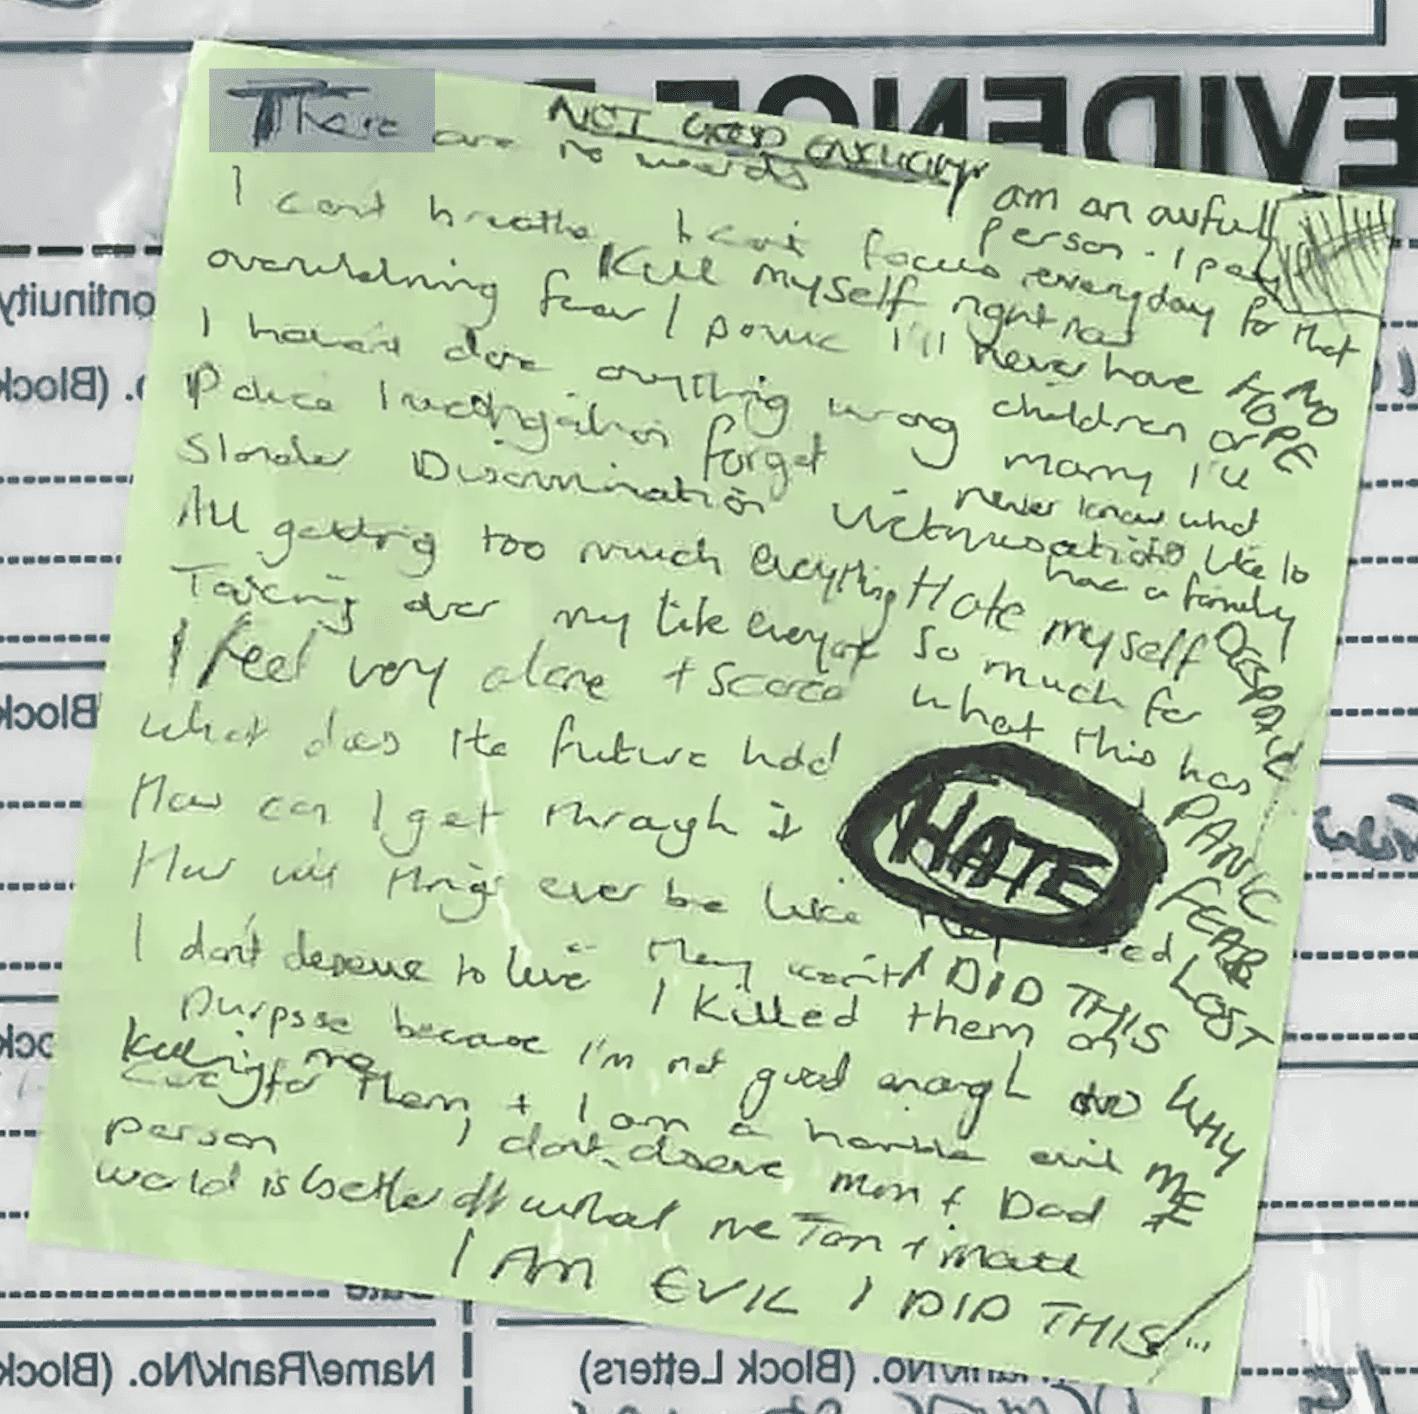 EVIDENCE
NOT GOOD ENOUGH
There are no words
I can't breathe I can't focus
overwhelming fear / panic
Kill myself right now
I haven't done anything wrong
Police Investigation forget
Slander Discrimination Victimisation
All getting too much everything
Taking over my life everyone
I feel very alone + scared
what does the future hold
How can I get through it
How will things ever be like
HATE
I don't deserve to live I killed them on
purpose because I'm not good enough
killing me
care for them + I am a horrible evil
person I don't deserve mum + Dad
world is better off without me Tom + Matt
I AM EVIL I DID THIS
am an awful
person - I pay
everyday for that
I'll never have
children or
marry I'll
never know what
like to
have a family
Hate myself
so much for
what this has
I DID THIS
NO
HOPE
DESPAIR
PANIC
FEAR
LOST
WHY
ME
ontinuity
o. (Block
Block
Name/Rank/No. (Block
Rank/No. (Block Letters)